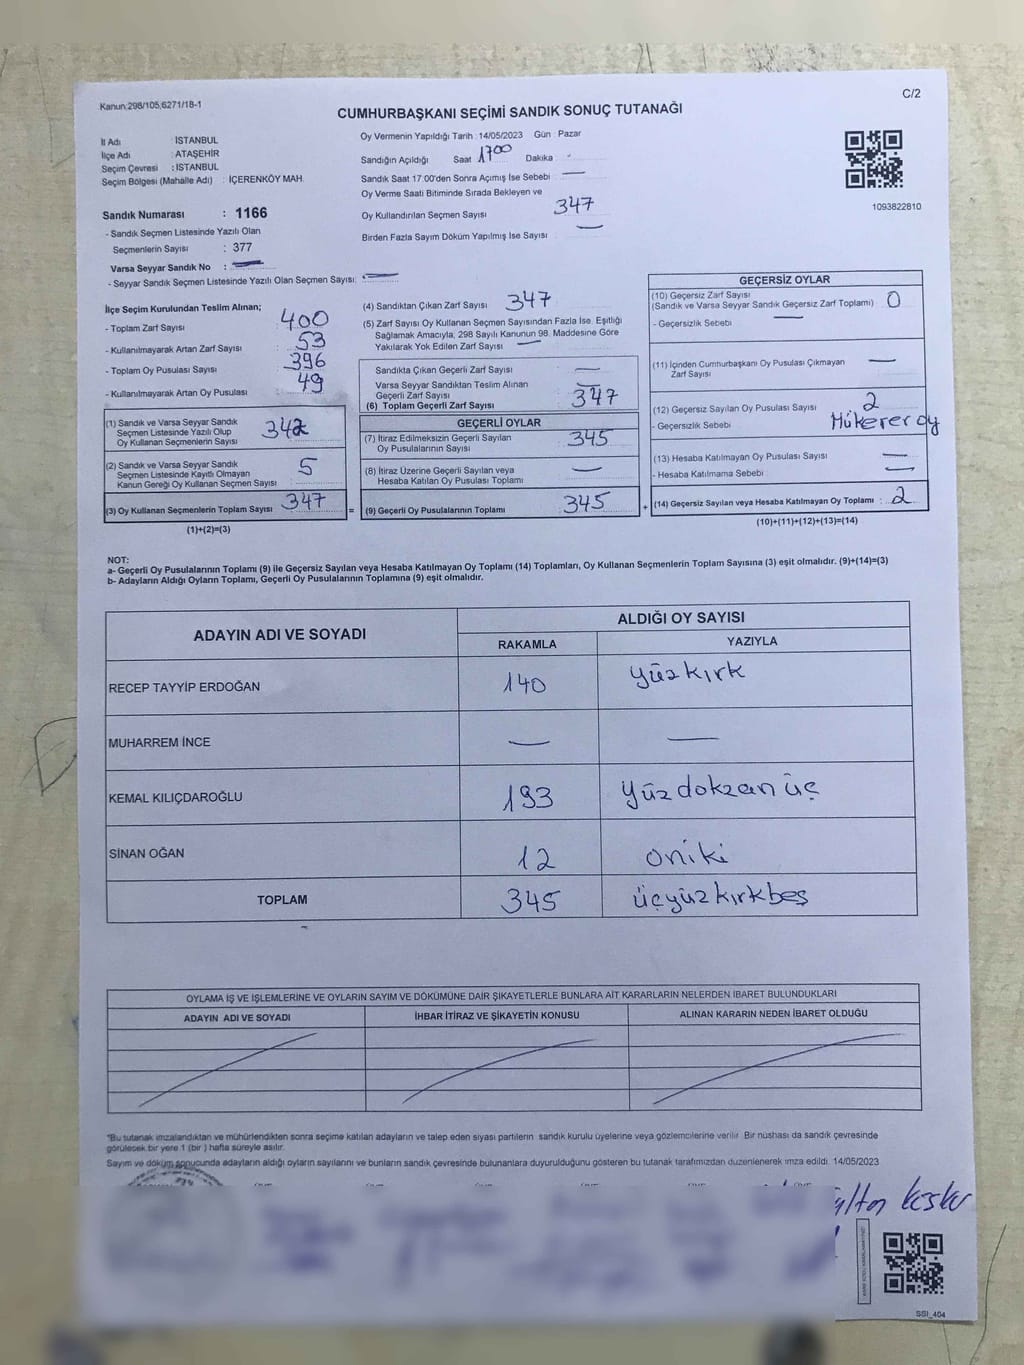 Kanun:298/105,6271/18-1
C/2
CUMHURBAŞKANI SEÇİMİ SANDIK SONUÇ TUTANAĞI
İl Adı : İSTANBUL
İlçe Adı : ATAŞEHİR
Seçim Çevresi : İSTANBUL
Seçim Bölgesi (Mahalle Adı) : İÇERENKÖY MAH.
Sandık Numarası : 1166
- Sandık Seçmen Listesinde Yazılı Olan
Seçmenlerin Sayısı : 377
Varsa Seyyar Sandık No :
- Seyyar Sandık Seçmen Listesinde Yazılı Olan Seçmen Sayısı:
Oy Vermenin Yapıldığı Tarih : 14/05/2023 Gün : Pazar
Sandığın Açıldığı Saat 1700 Dakika
Sandık Saat 17:00'den Sonra Açımış İse Sebebi
Oy Verme Saati Bitiminde Sırada Bekleyen ve
Oy Kullandırılan Seçmen Sayısı 347
Birden Fazla Sayım Döküm Yapılmış İse Sayısı
1093822810
İlçe Seçim Kurulundan Teslim Alınan;
- Toplam Zarf Sayısı : 400
- Kullanılmayarak Artan Zarf Sayısı : 53
- Toplam Oy Pusulası Sayısı : 396
- Kullanılmayarak Artan Oy Pusulası 49
(1) Sandık ve Varsa Seyyar Sandık
Seçmen Listesinde Yazılı Olup
Oy Kullanan Seçmenlerin Sayısı 342
(2) Sandık ve Varsa Seyyar Sandık
Seçmen Listesinde Kayıtlı Olmayan
Kanun Gereği Oy Kullanan Seçmen Sayısı 5
(3) Oy Kullanan Seçmenlerin Toplam Sayısı 347
(1)+(2)=(3)
=
(4) Sandıktan Çıkan Zarf Sayısı 347
(5) Zarf Sayısı Oy Kullanan Seçmen Sayısından Fazla İse, Eşitliği
Sağlamak Amacıyla, 298 Sayılı Kanunun 98. Maddesine Göre
Yakılarak Yok Edilen Zarf Sayısı
Sandıkta Çıkan Geçerli Zarf Sayısı
Varsa Seyyar Sandıktan Teslim Alınan
Geçerli Zarf Sayısı
(6) Toplam Geçerli Zarf Sayısı 347
GEÇERLİ OYLAR
(7) İtiraz Edilmeksizin Geçerli Sayılan
Oy Pusulalarının Sayısı 345
(8) İtiraz Üzerine Geçerli Sayılan veya
Hesaba Katılan Oy Pusulası Toplamı
(9) Geçerli Oy Pusulalarının Toplamı 345
+
GEÇERSİZ OYLAR
(10) Geçersiz Zarf Sayısı
(Sandık ve Varsa Seyyar Sandık Geçersiz Zarf Toplamı) 0
- Geçersizlik Sebebi
(11) İçinden Cumhurbaşkanı Oy Pusulası Çıkmayan
Zarf Sayısı
(12) Geçersiz Sayılan Oy Pusulası Sayısı 2
- Geçersizlik Sebebi Mükerer oy
(13) Hesaba Katılmayan Oy Pusulası Sayısı
- Hesaba Katılmama Sebebi
(14) Geçersiz Sayılan veya Hesaba Katılmayan Oy Toplamı : 2
(10)+(11)+(12)+(13)=(14)
NOT:
a- Geçerli Oy Pusulalarının Toplamı (9) ile Geçersiz Sayılan veya Hesaba Katılmayan Oy Toplamı (14) Toplamları, Oy Kullanan Seçmenlerin Toplam Sayısına (3) eşit olmalıdır. (9)+(14)=(3)
b- Adayların Aldığı Oyların Toplamı, Geçerli Oy Pusulalarının Toplamına (9) eşit olmalıdır.
ADAYIN ADI VE SOYADI
ALDIĞI OY SAYISI
RAKAMLA YAZIYLA
RECEP TAYYİP ERDOĞAN 140 yüzkırk
MUHARREM İNCE
KEMAL KILIÇDAROĞLU 193 yüzdokzan üç
SİNAN OĞAN 12 oniki
TOPLAM 345 üçyüzkırkbeş
OYLAMA İŞ VE İŞLEMLERİNE VE OYLARIN SAYIM VE DÖKÜMÜNE DAİR ŞİKAYETLERLE BUNLARA AİT KARARLARIN NELERDEN İBARET BULUNDUKLARI
ADAYIN ADI VE SOYADI İHBAR İTİRAZ VE ŞİKAYETİN KONUSU ALINAN KARARIN NEDEN İBARET OLDUĞU
*Bu tutanak imzalandıktan ve mühürlendikten sonra seçime katılan adayların ve talep eden siyasi partilerin sandık kurulu üyelerine veya gözlemcilerine verilir. Bir nüshası da sandık çevresinde
görülecek bir yere 1 (bir) hafta süreyle asılır.
Sayım ve döküm sonucunda adayların aldığı oyların sayılarını ve bunların sandık çevresinde bulunanlara duyurulduğunu gösteren bu tutanak tarafımızdan düzenlenerek imza edildi. 14/05/2023
SSI_404